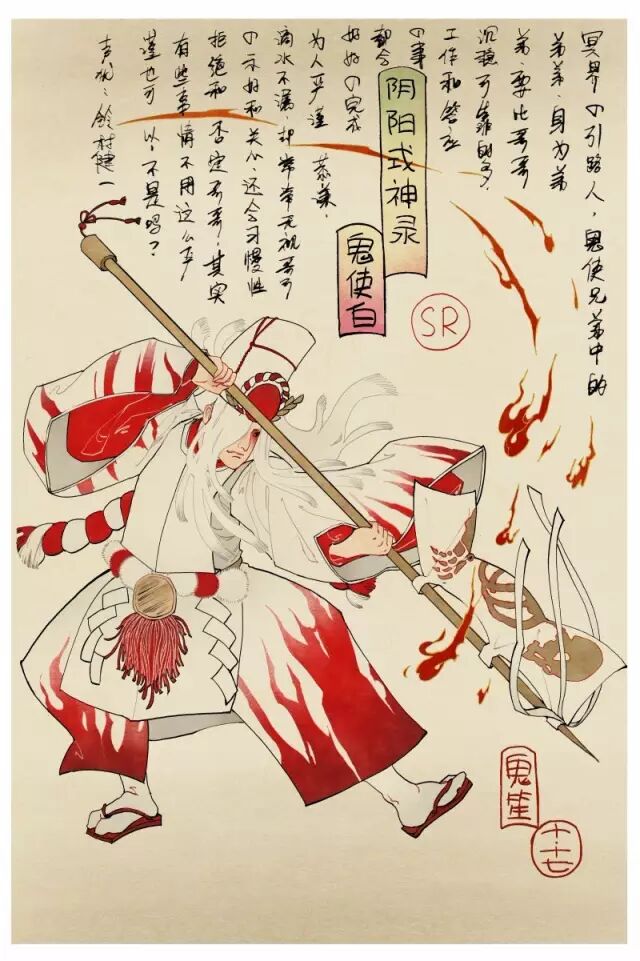 冥界の引路人，鬼使兄弟中的
弟弟，身为弟
弟，要比哥哥
沉稳可靠的多，
工作和答应
の事
都会
好好の完成
为人严谨
滴水不漏，却常常无视哥哥
の示好和关心，还会习惯性
拒绝和否定哥哥，其实
有些事情不用这么严
谨也可以，不是吗？
声优：鈴村健一
阴阳式神录
鬼使白
SR
鬼笙
十·十七